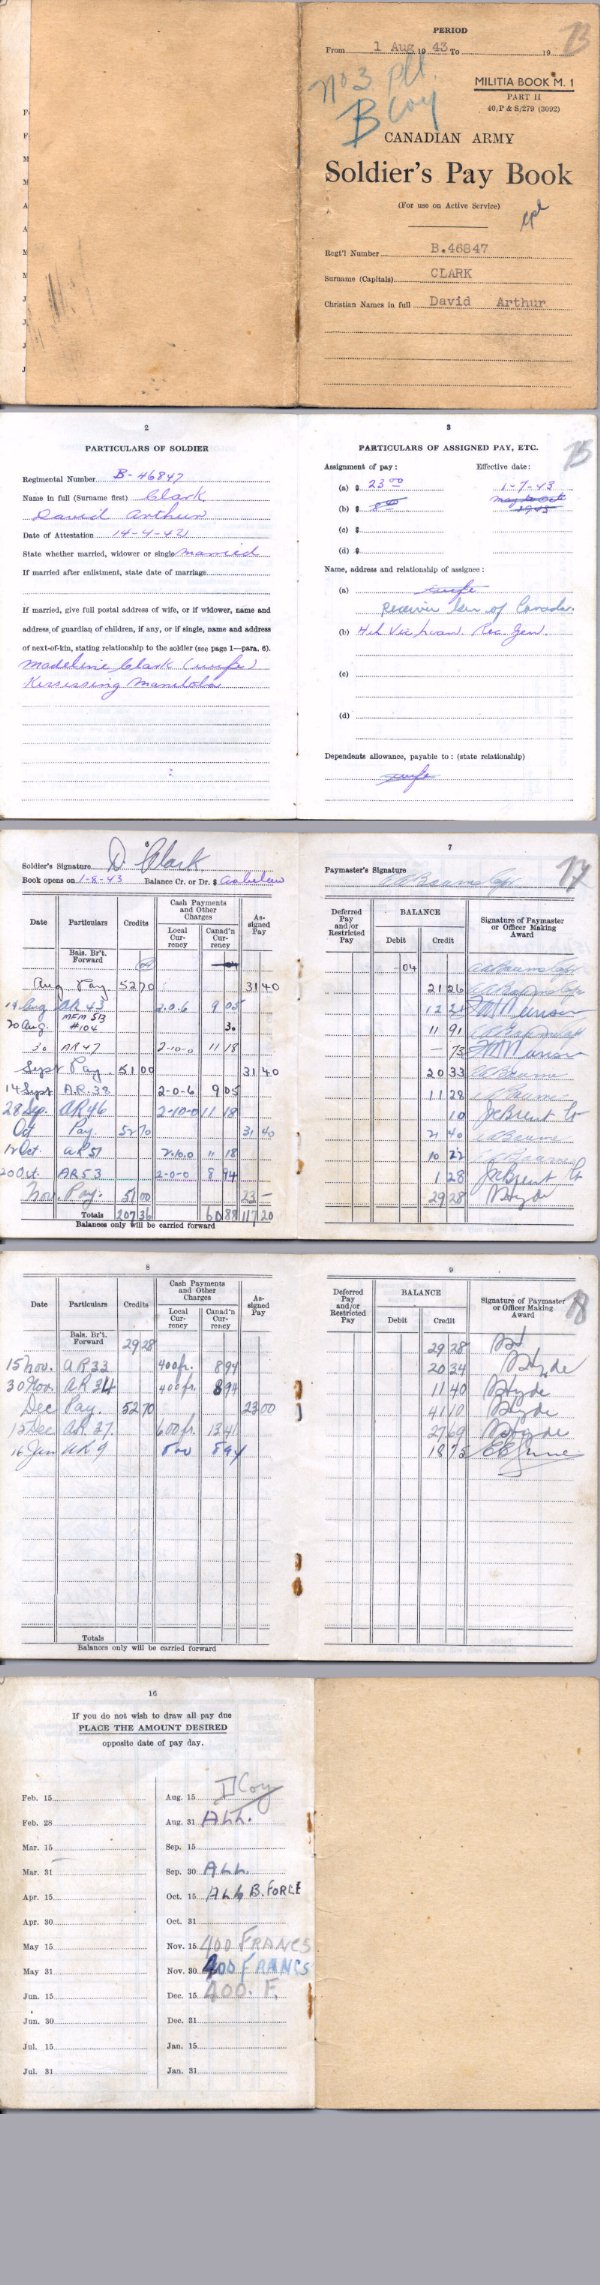 PERIOD
From 1 Aug 19 43 To 19
73
No 3 Plt.
B Coy
MILITIA BOOK M. 1
PART II
40,P & S/279 (3092)
CANADIAN ARMY
Soldier's Pay Book
(For use on Active Service)
Regt'l Number B.46847
Surname (Capitals) CLARK
Christian Names in full David Arthur
2
PARTICULARS OF SOLDIER
Regimental Number B-46847
Name in full (Surname first) Clark
David Arthur
Date of Attestation 14-4-42
State whether married, widower or single married
If married after enlistment, state date of marriage
If married, give full postal address of wife, or if widower, name and
address of guardian of children, if any, or if single, name and address
of next-of-kin, stating relationship to the soldier (see page 1—para. 6).
Madeline Clark (wife)
Kississing Manitoba
3
75
PARTICULARS OF ASSIGNED PAY, ETC.
Assignment of pay: Effective date:
(a) $ 23 00 1-7-43
(b) $ 8 40
(c) $
(d) $
Name, address and relationship of assignee:
(a) wife
Receiver Gen of Canada.
(b) 4th Vic Loan. Rec Gen.
(c)
(d)
Dependents allowance, payable to: (state relationship)
wife
6
Soldier's Signature D Clark
Book opens on 1-8-43 Balance Cr. or Dr. $ as below
Date Particulars Credits Cash Payments and Other Charges Local Currency Canad'n Currency Assigned Pay
Bals. Br't. Forward 04
Aug Pay 52 70 31 40
19 Aug AR 43 2.0.6 9 05
20 Aug MFM 513 #104 3.
30 AR 47 2-10-0 11 18
Sept Pay. 51 00 31 40
14 Sept A.R. 38 2-0-6 9 05
28 Sep. AR 46 2-10-0 11 18
Oct Pay. 52 70 31 40
12 Oct. AR 51 2.10.0 11 18
20 Oct. AR 53 2-0-0 8 94
Nov. Pay. 51 00 23 -
Totals 207 36 60 88 117 20
Balances only will be carried forward
7
Paymaster's Signature
Deferred Pay and/or Restricted Pay BALANCE Debit Credit Signature of Paymaster or Officer Making Award
04
21 26
12 21
11 91
73
20 33
11 28
10
21 40
10 22
1 28
29 28
8
Date Particulars Credits Cash Payments and Other Charges Local Currency Canad'n Currency Assigned Pay
Bals. Br't. Forward 29 28
15 Nov. AR 33 400 fr. 8 94
30 Nov. AR 34 400 fr. 8 94
Dec Pay. 52 70 23 00
15 Dec AR. 37. 600 fr. 13 41
16 Jan AR 9 8 94
Totals
Balances only will be carried forward
9
Deferred Pay and/or Restricted Pay BALANCE Debit Credit Signature of Paymaster or Officer Making Award
29 28
20 34
11 40
41 10
27 69
18 75
16
If you do not wish to draw all pay due
PLACE THE AMOUNT DESIRED
opposite date of pay day.
Feb. 15
Feb. 28
Mar. 15
Mar. 31
Apr. 15
Apr. 30
May 15
May 31
Jun. 15
Jun. 30
Jul. 15
Jul. 31
Aug. 15 D Coy
Aug. 31 ALL.
Sep. 15
Sep. 30 ALL
Oct. 15 ALL B. FORCE
Oct. 31
Nov. 15 400 FRANCS
Nov. 30 400 FRANCS
Dec. 15 400. F.
Dec. 31
Jan. 15
Jan. 31